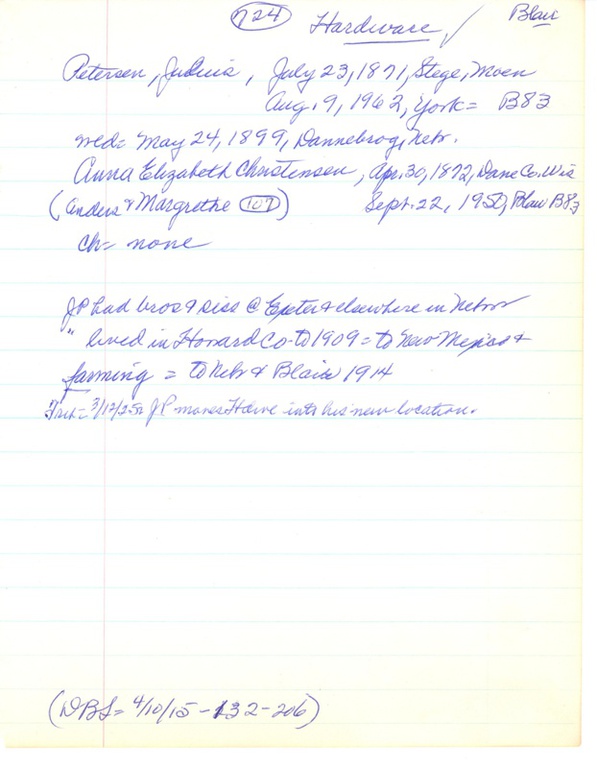 724 Hardware ✓ Blair
Petersen, Julius, July 23, 1871, Stege, Moen
Aug. 9, 1962, York = B83
wed = May 24, 1899, Dannebrog, Nebr.
Anna Elizabeth Christensen, Apr. 30, 1872, Dane Co. Wis
(Anders & Margrethe 107) Sept. 22, 1950, Blair B83
ch = none
JP had bros & siss @ Exeter & elsewhere in Nebr
" lived in Howard Co - to 1909 = to New Mexico &
farming = to Nebr & Blair 1914
= 3/12/25 = JP moves Hdwe into his new location.
(DBS = 4/10/15 - 132-206)